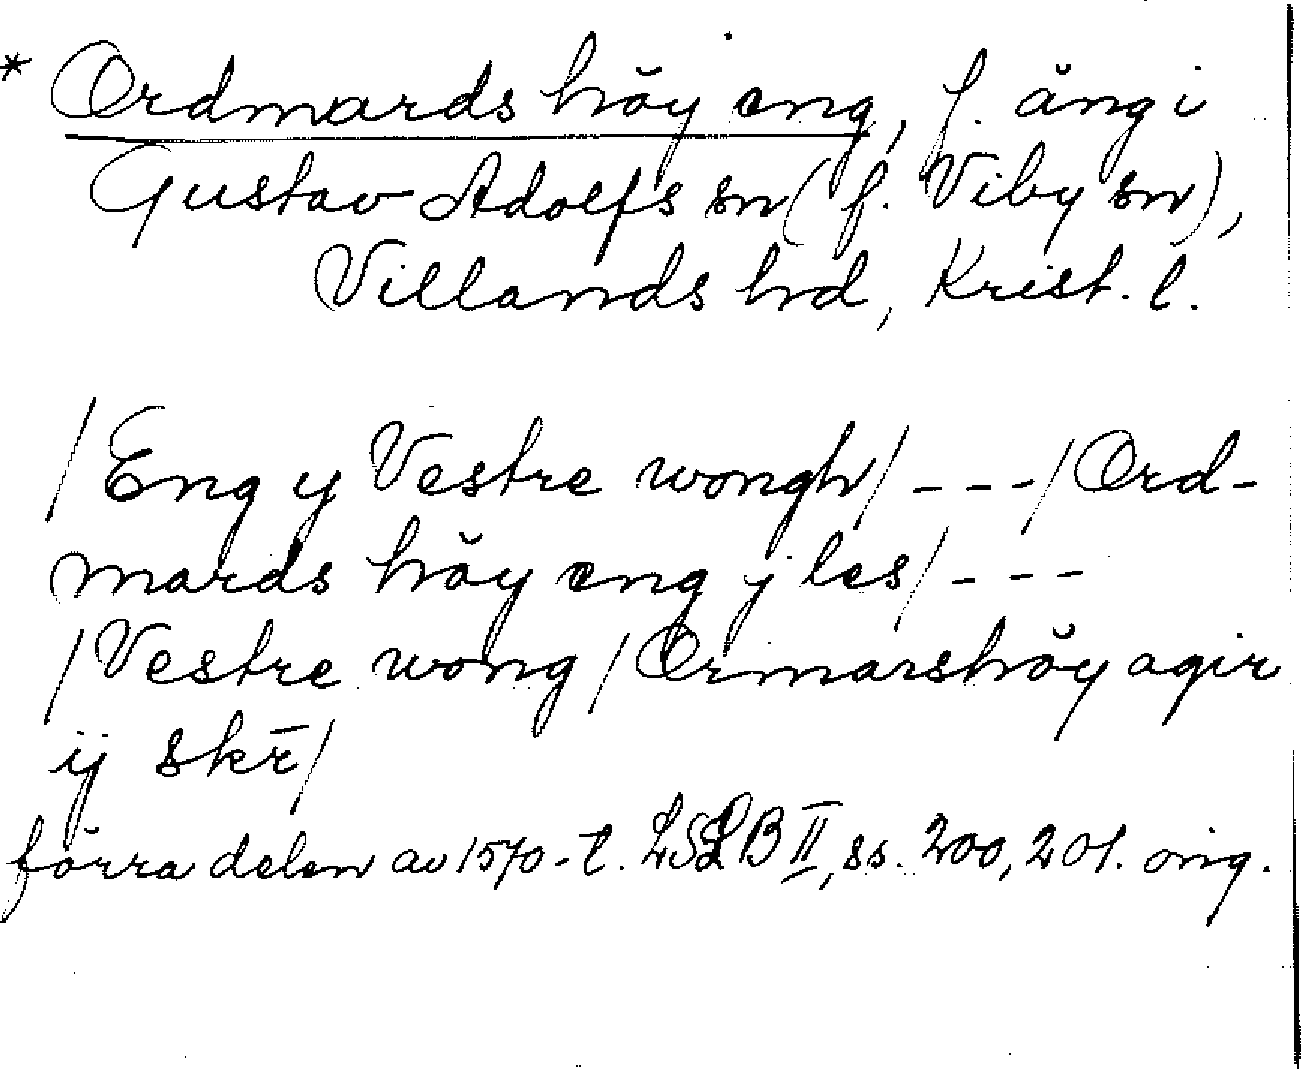 * Ordmards höy eng, f. äng i
Gustav Adolfs sn (f. Viby sn),
Villands hd, Krist. l.
/Eng y Vestre wongh/ - - - /Ord-
mards höy eng j les/ - - -
/Vestre wong/Ormarshöy agir
ij skr̄/
förra delen av 1570-t. LSLB II, ss. 200, 201. orig.